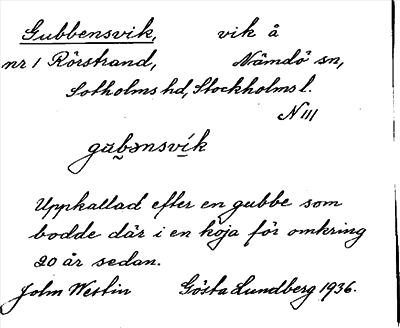 Gubbensvik, vik å
nr 1 Rörstrand, Nämdö sn,
Sotholms hd, Stockholms l.
N III
gu̇bənsvík
Uppkallad efter en gubbe som
bodde där i en koja för omkring
20 år sedan.
John Westin Gösta Lundberg 1936.